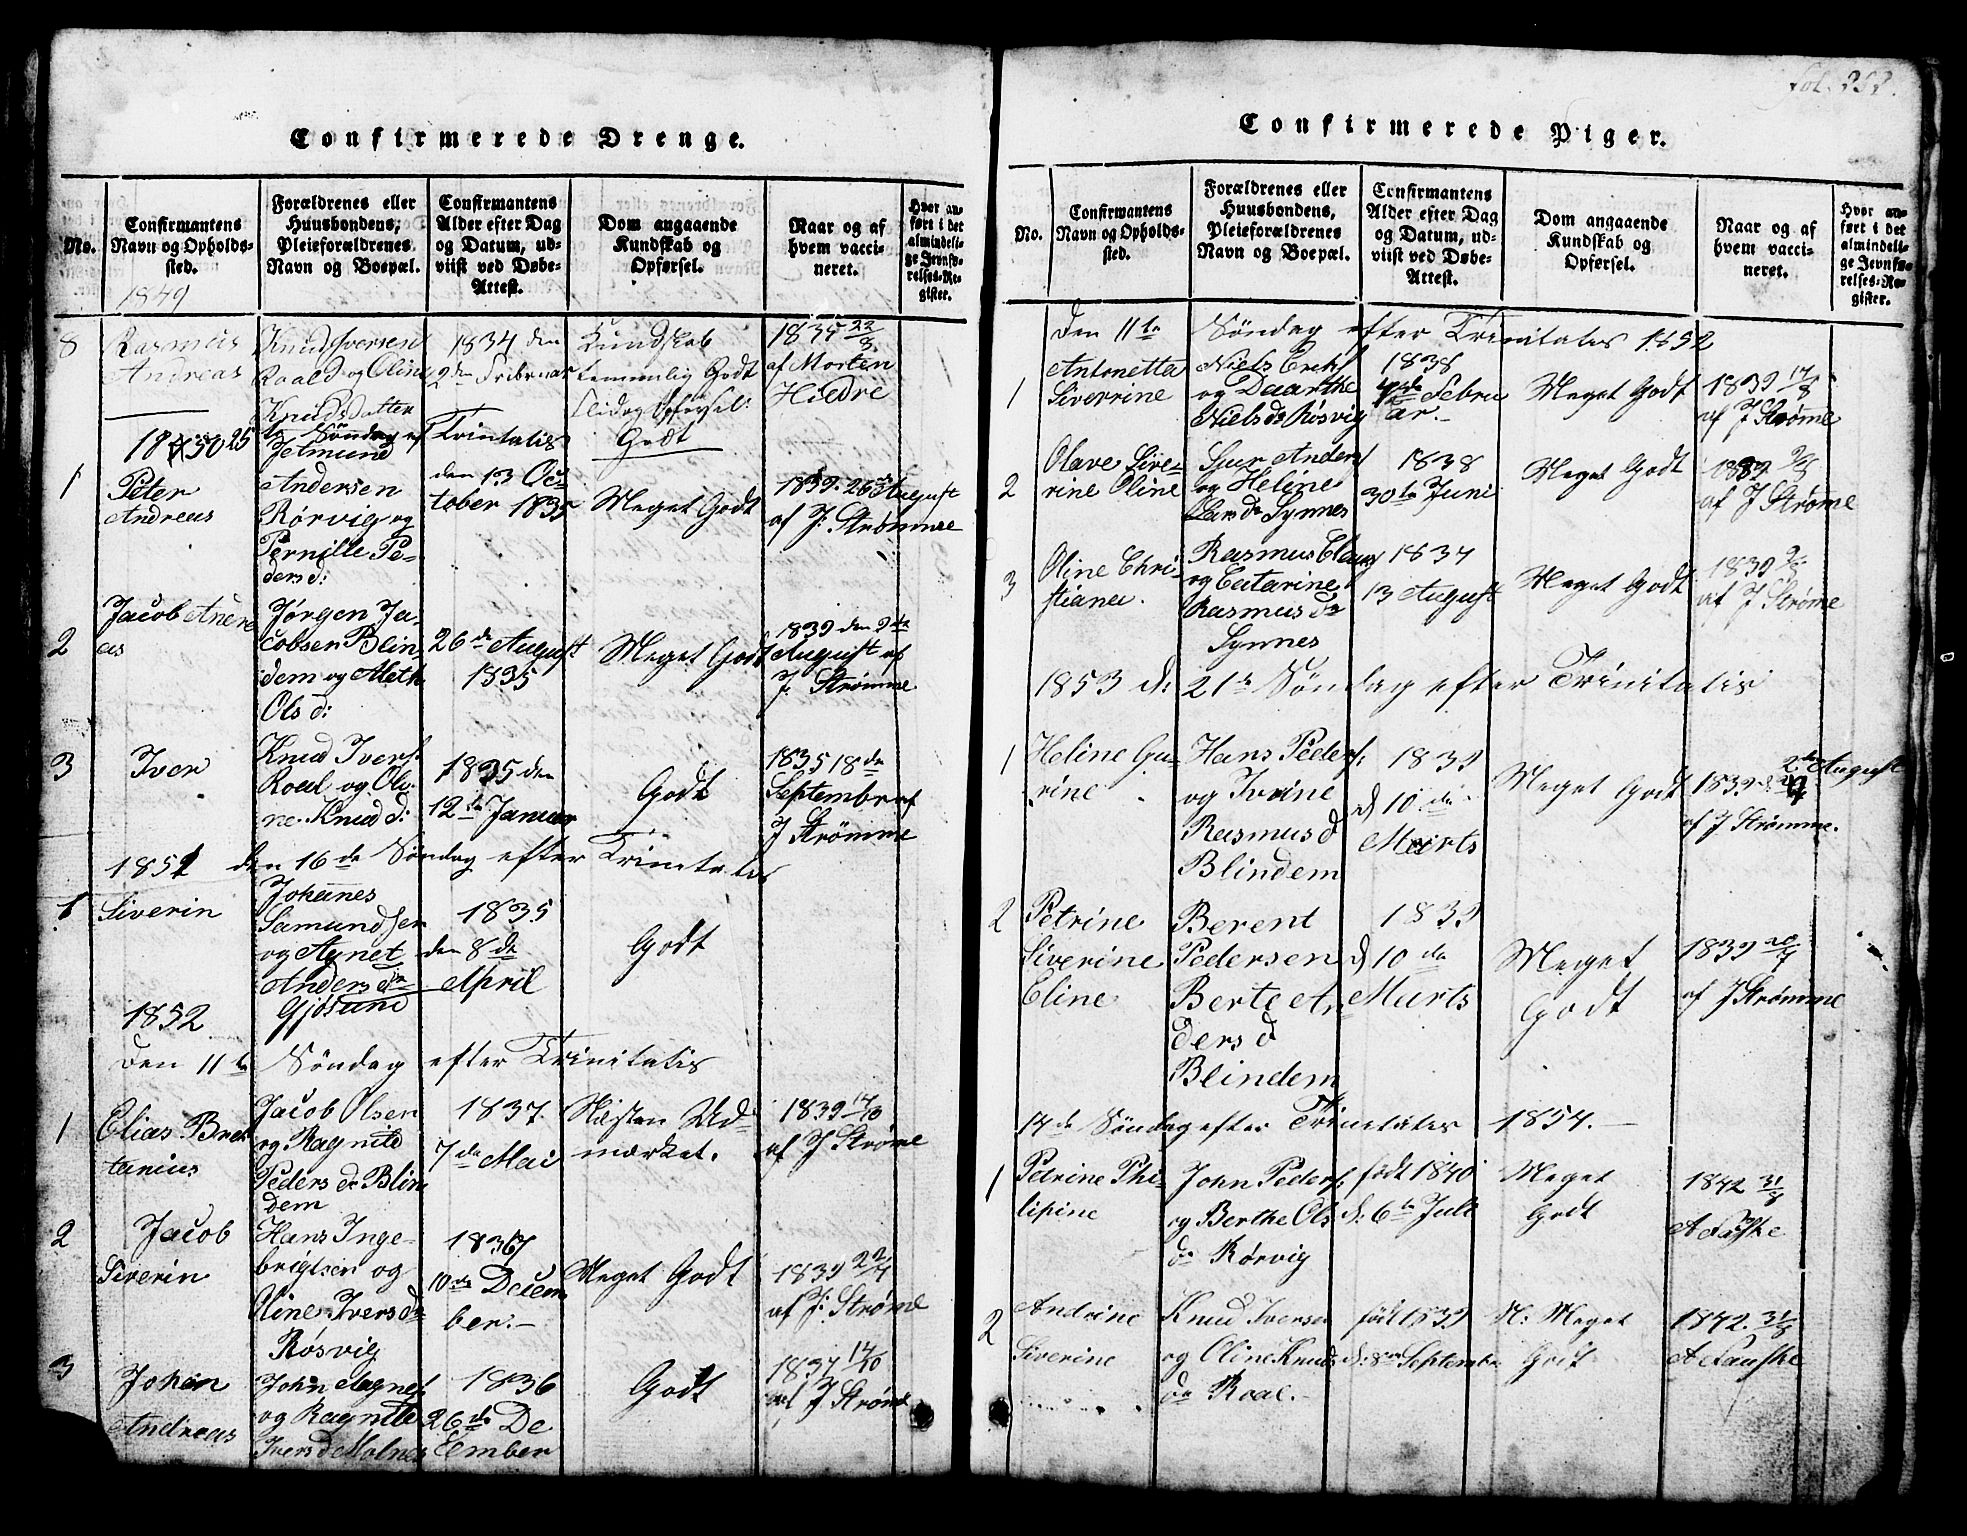 Confirmerede Drenge.
No.
Confirmantens
Navn og Opholds-
sted.
Forældrenes eller
Huusbondens,
Pleieforældrenes
Navn og Boepæl.
Confirmantens
Alder efter Dag
og Datum, ud-
viist ved Døbe-
Attest.
Dom angaaende
Kundskab og
Opførsel.
Naar og af
hvem vacci-
neret.
Hvor an-
ført i det
almindeli-
ge Jevnfø-
relses-Re-
gister.
1849
8
Rasmus
Andreas
Knud Iversen
Roald og Oline
Knudsdatter
1834 den
2den Februar
Kundskab
temmelig Godt
Flid og Opførsel:
Godt
1834 22/8
af Morten
Hildre
1850 25
Søndag ef
Trinitatis
1
Peter
Andreas
Jetmund
Andersen
Rørvig og
Pernille Pe-
dersd:
den 13 Oc-
tober 1835
Meget Godt
1839. 26 August
af J: Strømme
2
Jacob Andre
as
Jørgen Ja-
cobsen Blin
dem og Aleth
Ols d:
26de August
1835
Meget Godt
1839 den 9de
August af
J: Strømme
3
Iver
Knud Ivers.
Roal og Oli-
ne Knud d:
1835 den
12te Januar
Godt
1835 18de
September af
J Strømme
1851 den 16de Søndag efter Trinitatis
1
Siverin
Johanes
Samundsen
og Agnet
Anders dr
Gjøsund
1835
den 8de
April
Godt
1852
Den 11te Søndag efter Trinitatis
1
Elias Bret
tanius
Jacob Olsen
og Ragnild
Peders dr Blin
dem
1837.
7de Mai
Næsten Ud-
mærket.
1839 14/10
af J Strøme
2
Jacob
Siverin
Hans Inge-
brigtsen og
Oline Ivers dr
Røsvig
1836
10de Decem
ber.-
Meget Godt
1839 22/7
af J: Strøme
3
Johan
Andreas
John Magnes
og Ragnilde
Ivers d Molnes
1836
26de De
cember
Godt
1837 14/10
af J Strøme
fol.
Confirmerede Piger.
No.
Confirmantens
Navn og Opholds-
sted.
Forældrenes eller
Huusbondens,
Pleieforældrenes
Navn og Boepæl.
Confirmantens
Alder efter Dag
og Datum, ud-
viist ved Døbe-
Attest.
Dom angaaende
Kundskab og
Opførsel.
Naar og af
hvem vacci-
neret.
Hvor an-
ført i det
almindeli-
ge Jevnfø-
relses-Re-
gister.
Den 11te Søndag efter Trinitatis 1852
1
Antonetta
Siverrine
Niels Eriks
og Daarthe
Niels dr Røsvig
1838
Febru
ar.-
Meget Godt
1839 17/8
af J Strøme
2
Olave Sive-
rine Oline
Sjur Anders
og Heline
Lars dr Synnes
1838
30te Juni
Meget Godt
af J Strøme
3
Oline Chri-
stiane.
Rasmus Claus
og Catarine
Rasmus dr
Synnes
1837
13 August
Meget Godt
1839
af J Strøme
1853 d: 21te Søndag efter Trinitatis
1
Heline Gu-
rine
Hans Peders.
og Ivrine
Rasmus d
Blindem
1839
d 10de
Marts
Meget Godt
1839 2den August
af J Strømme.
2
Petrine
Siverine
Eline
Berent
Pedersen
Berte An
ders d
Blindem
1839
d 10de
Marts
Meget
Godt
1839 20/7
af J Strømme
14de Søndag efter Trinitatis 1854.-
1
Petrine Phi-
lipine
John Peders.
og Berthe Ols
dr Rørvig
født 1840
d: 6te Juli
Meget
Godt
1842 31/8
A Fauske
2
Andrine
Siverine
Knud Iversen
og Oline Knuds
dr Roal.-
født 1839
d: 8de September
N: Meget
Godt
1842. 31/8
A Fauske